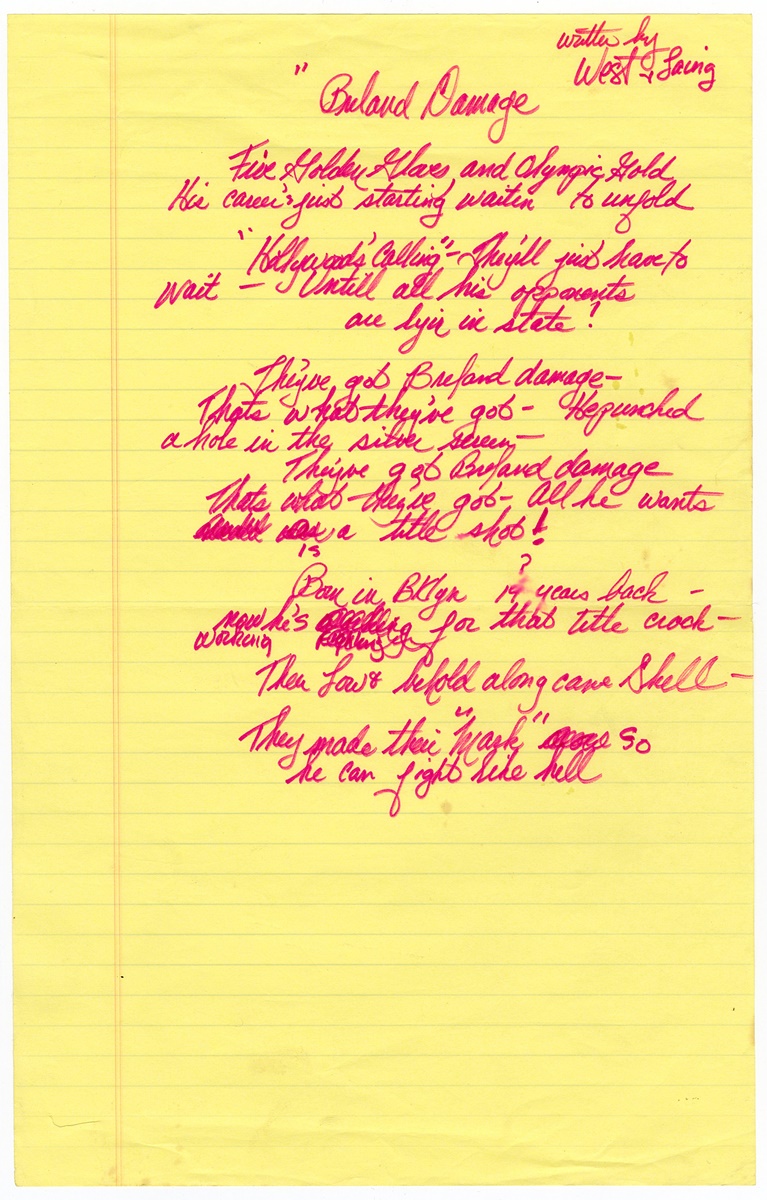 written by
West & Laing
" Breland Damage
Five Golden Gloves and Olympic Gold
His career's just starting waitin to unfold
"Hollywoods' Calling" - They'll just have to
wait - Untill all his opponents
are lyin in state!
They've got Breland damage -
Thats what they've got - He punched
a hole in the silver screen -
They've got Breland damage
Thats what they've got - All he wants
is a title shot!
?
Born in BKlyn 19 years back -
now he's for that title crack -
working
Then Low & behold along came Shell -
They made their "Mark" so
he can fight like hell